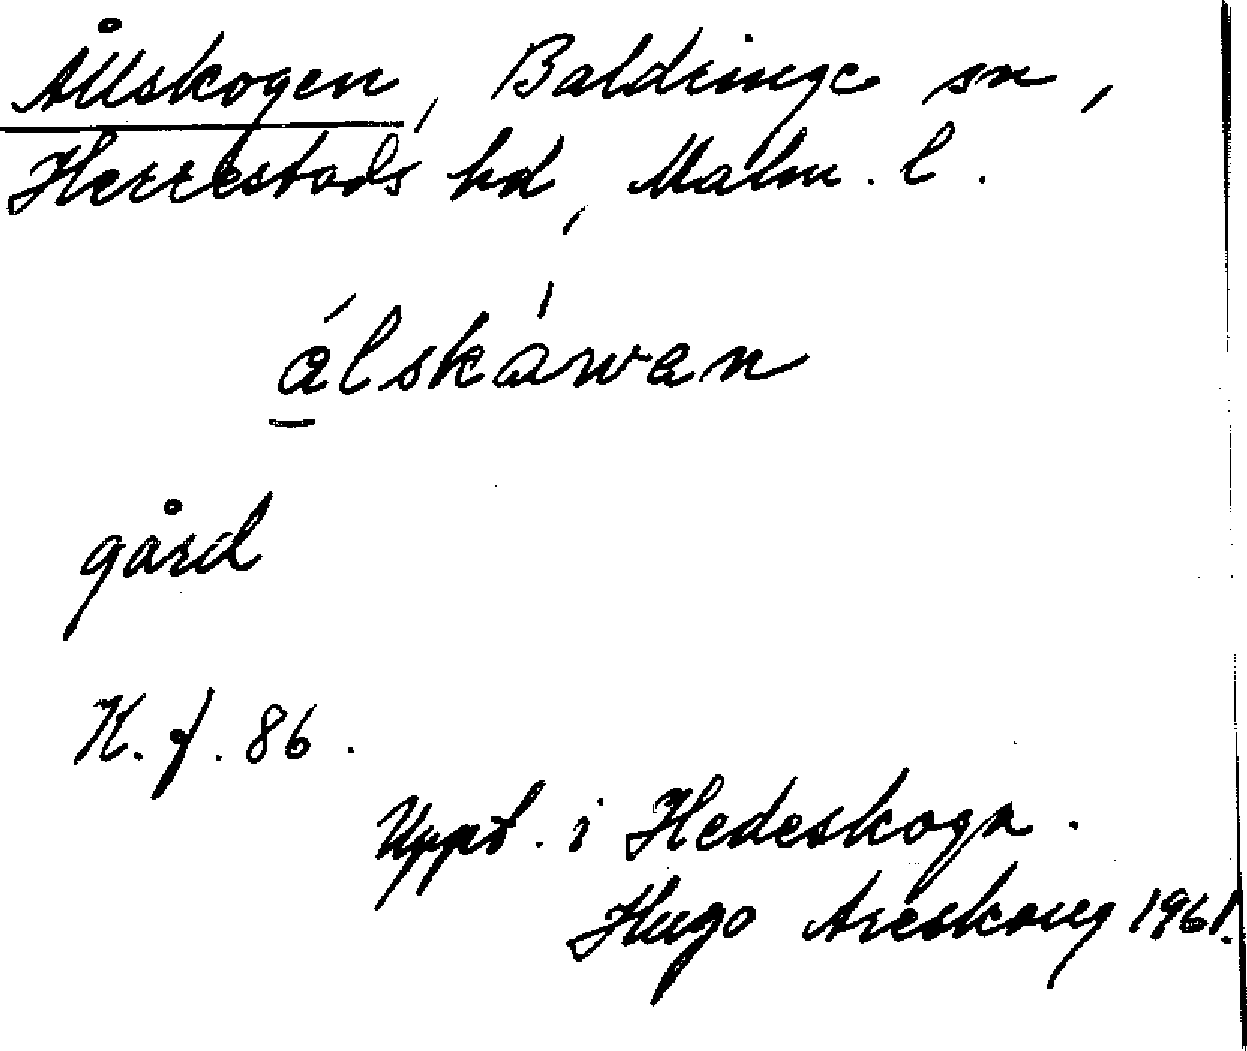 Ållskogen, Baldringe sn,
Herrestads hd, Malm. l.
álskàwan
gård
K. f. 86.
Uppt. i Hedeskoga.
Hugo Areskoug 1961.